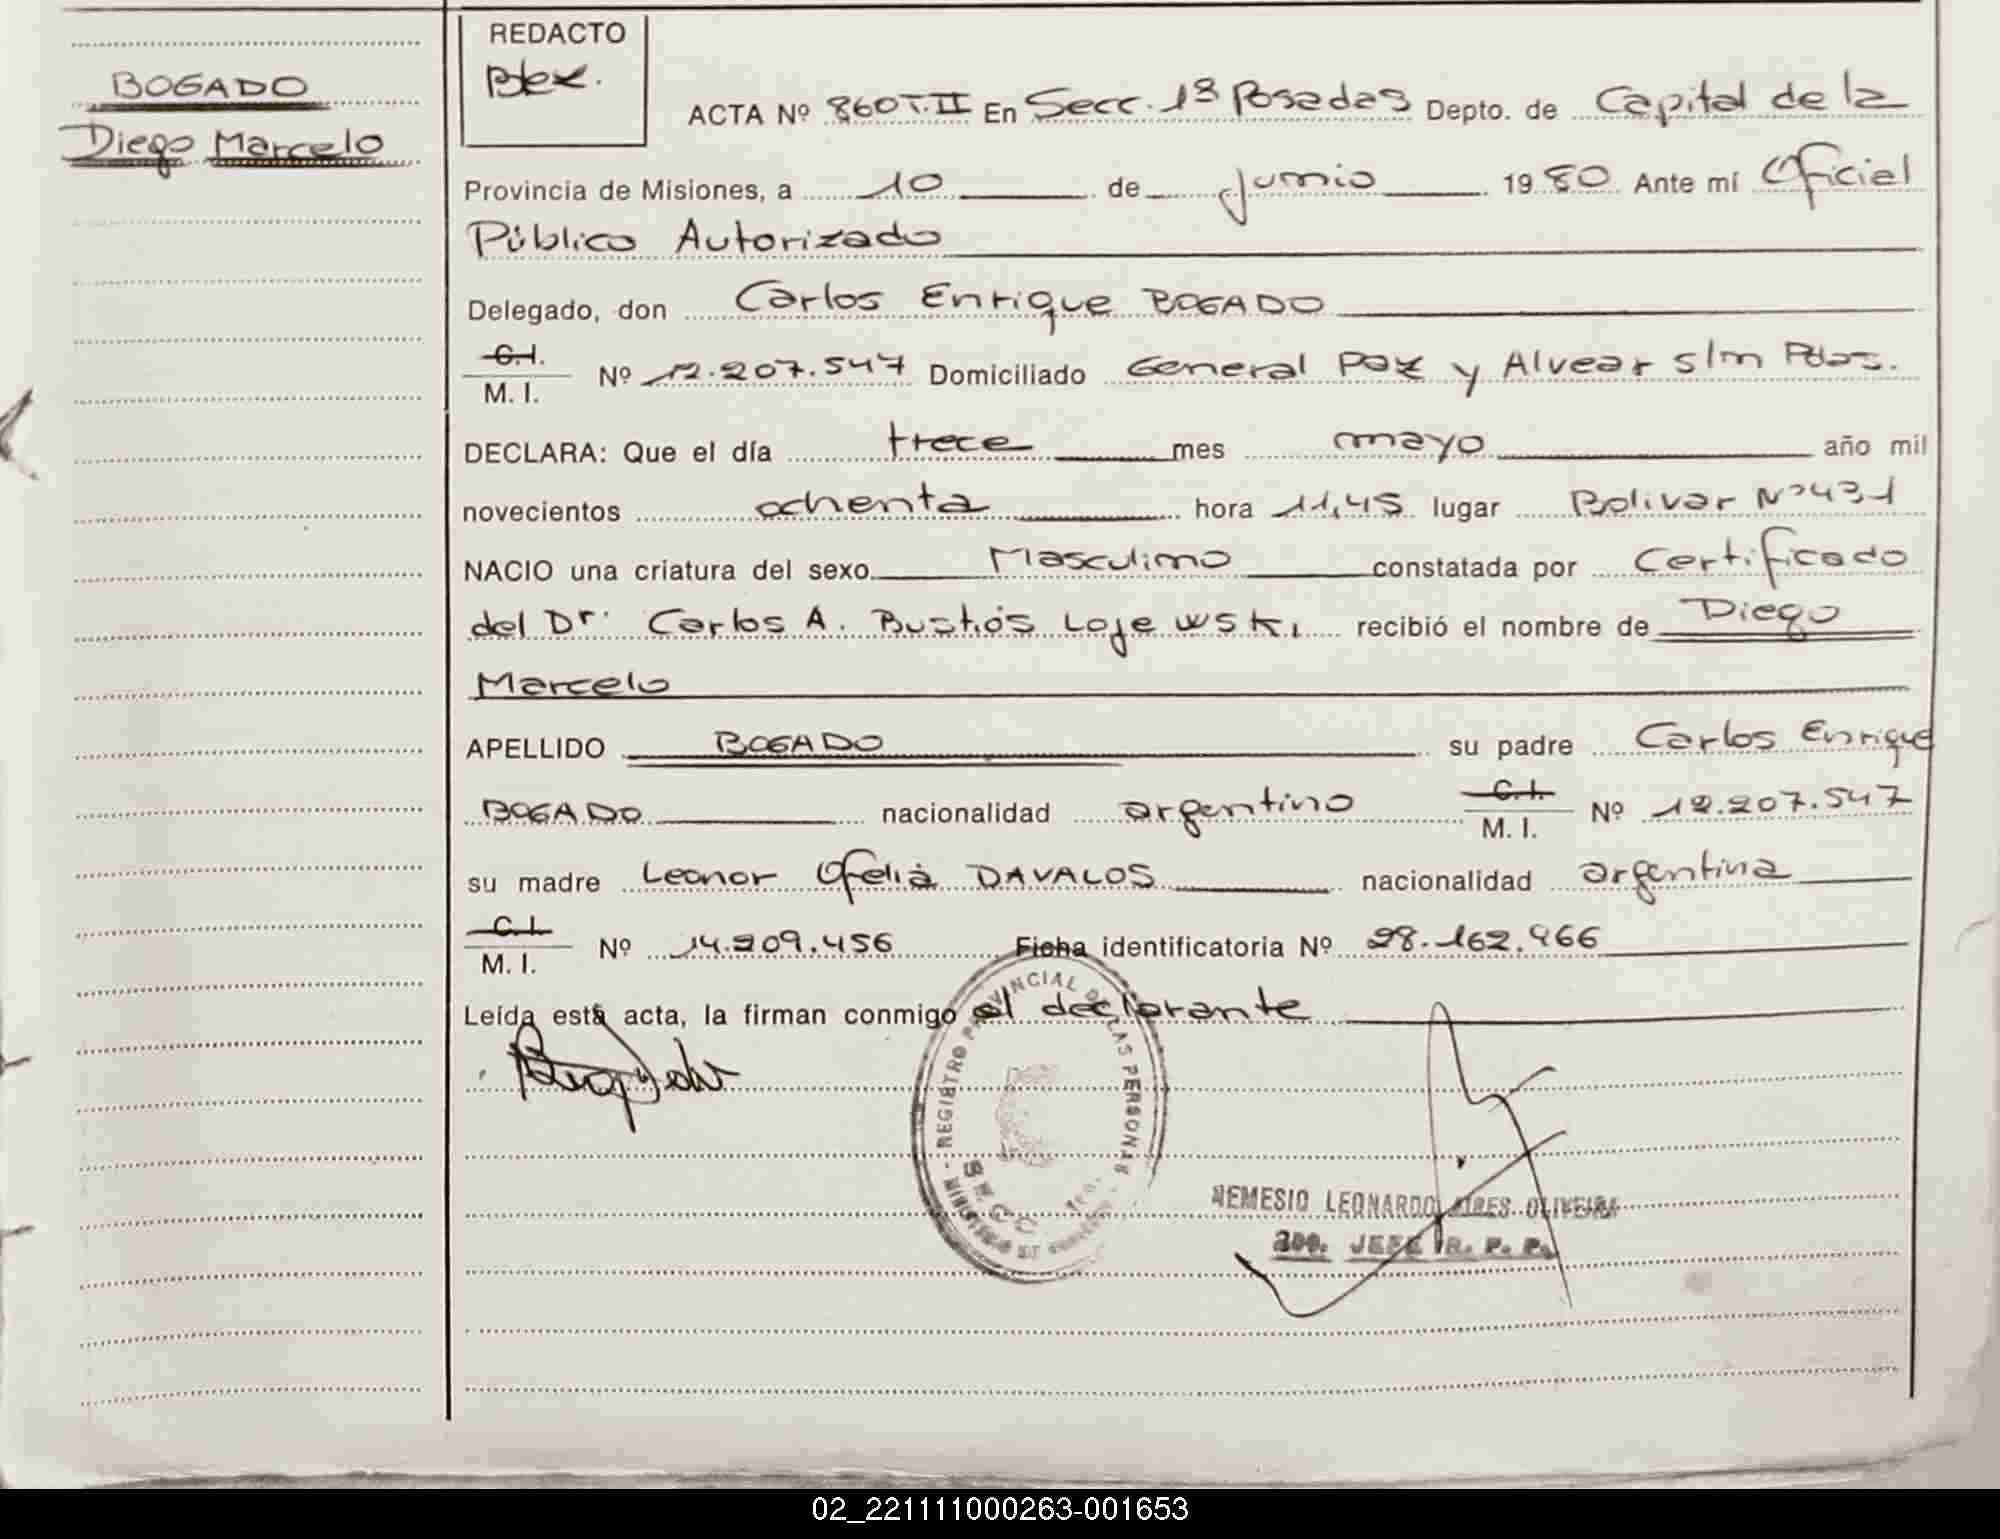 BOGADO
Diego Marcelo
REDACTO
ACTA Nº 860 T.II En Secc. 1ª Posadas Depto. de Capital de la
Provincia de Misiones, a 10 de junio 1980 Ante mí Oficial
Público Autorizado
Delegado, don Carlos Enrique BOGADO
C.I.
M. I. Nº 12.207.547 Domiciliado General Paz y Alvear s/n Pdas.
DECLARA: Que el día trece mes mayo año mil
novecientos ochenta hora 11,45 lugar Bolivar Nº 431
NACIO una criatura del sexo Masculino constatada por Certificado
del Dr. Carlos A. Bustos Lojewski recibió el nombre de Diego
Marcelo
APELLIDO BOGADO su padre Carlos Enrique
BOGADO nacionalidad argentino C.I. M. I. Nº 12.207.547
su madre Leonor Ofelia DAVALOS nacionalidad argentina
C.I.
M. I. Nº 14.209.456 Ficha identificatoria Nº 28.162.966
Leída esta acta, la firman conmigo el declarante
REGISTRO PROVINCIAL DE LAS PERSONAS
NEMESIO LEONARDO AIRES OLIVEIRA
2do. JEFE R. P. P.
02_221111000263-001653